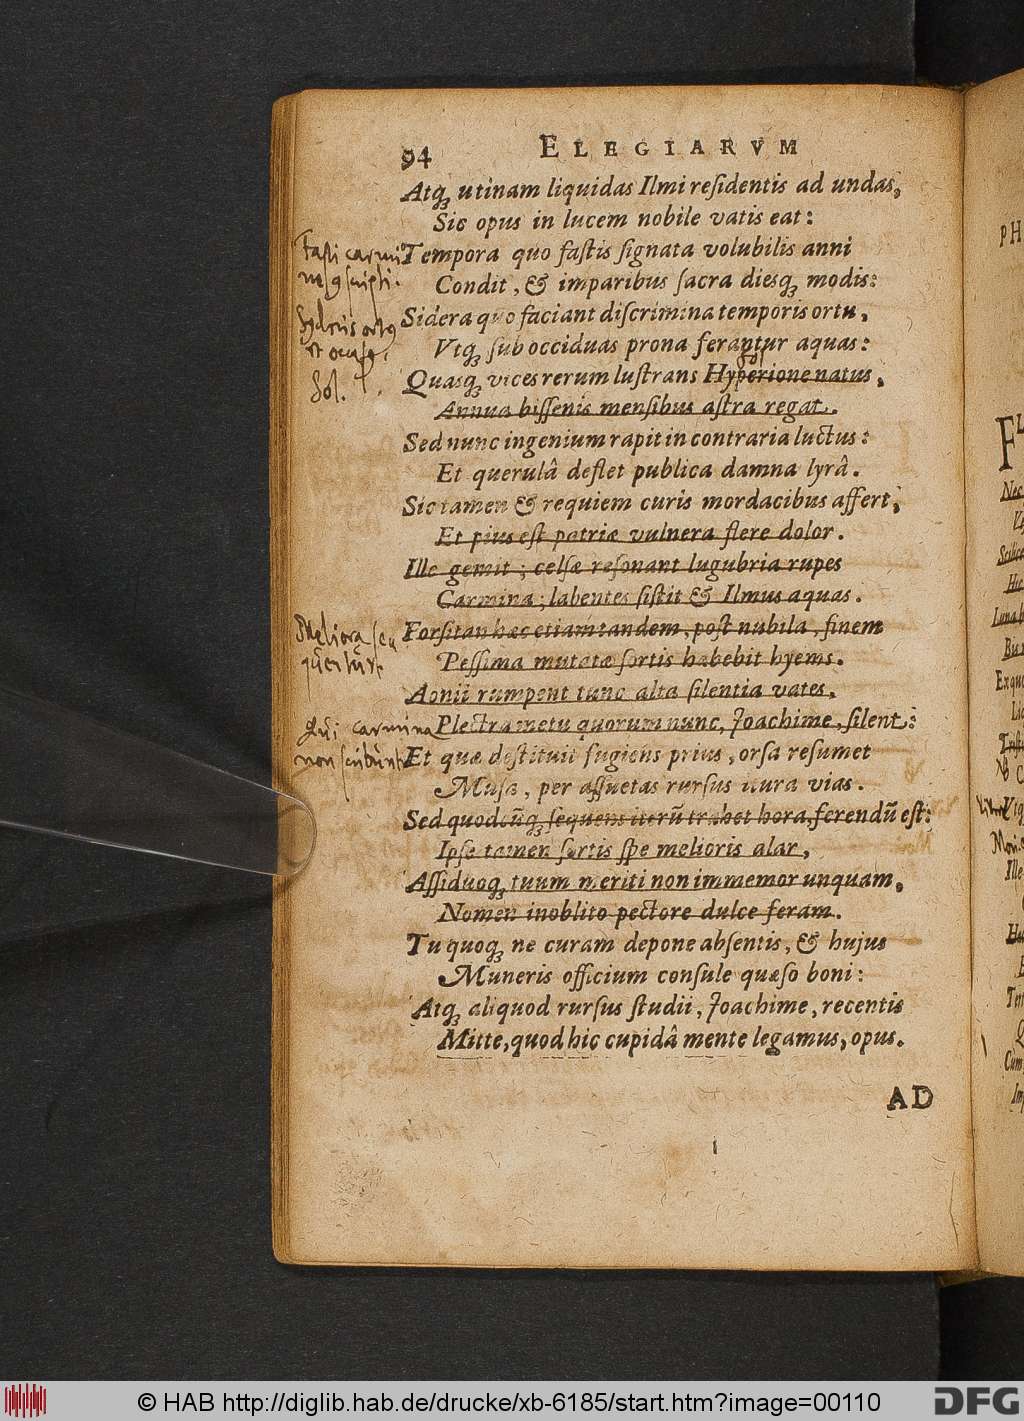 94 ELEGIARVM
Atq; utinam liquidas Ilmi residentis ad undas,
Sic opus in lucem nobile vatis eat:
Tempora quo fastis signata volubilis anni
Condit, & imparibus sacra diesq; modis:
Sidera quo faciant discrimina temporis ortu,
Vtq; sub occiduas prona ferantur aquas:
Quasq; vices rerum lustrans Hyperione natus,
Annua bissenis mensibus astra regat.
Sed nunc ingenium rapit in contraria luctus:
Et querulâ deflet publica damna lyrâ.
Sic tamen & requiem curis mordacibus affert,
Et pius est patriæ vulnera flere dolor.
Ille gemit; celsæ resonant lugubria rupes
Carmina; labentes sistit & Ilmus aquas.
Forsitan hæc etiam tandem, post nubila, finem
Pessima mutatæ sortis habebit hyems.
Aonii rumpent tunc alta silentia vates,
Plectra metu quorum nunc, Joachime, silent:
Et quæ destituit fugiens prius, orsa resumet
Musa, per assuetas rursus itura vias.
Sed quodcũq; sequens iterũ trahet hora, ferendũ est:
Ipse tamen sortis spe melioris alar,
Assiduoq; tuum meriti non immemor unquam,
Nomen inoblito pectore dulce feram.
Tu quoq; ne curam depone absentis, & hujus
Muneris officium consule quæso boni:
Atq; aliquod rursus studii, Joachime, recentis
Mitte, quod hic cupidâ mente legamus, opus.
AD
Fasti carmi
Sol.
Sol
Meliora
Qui carmina
non scribunt
© HAB http://diglib.hab.de/drucke/xb-6185/start.htm?image=00110
DFG